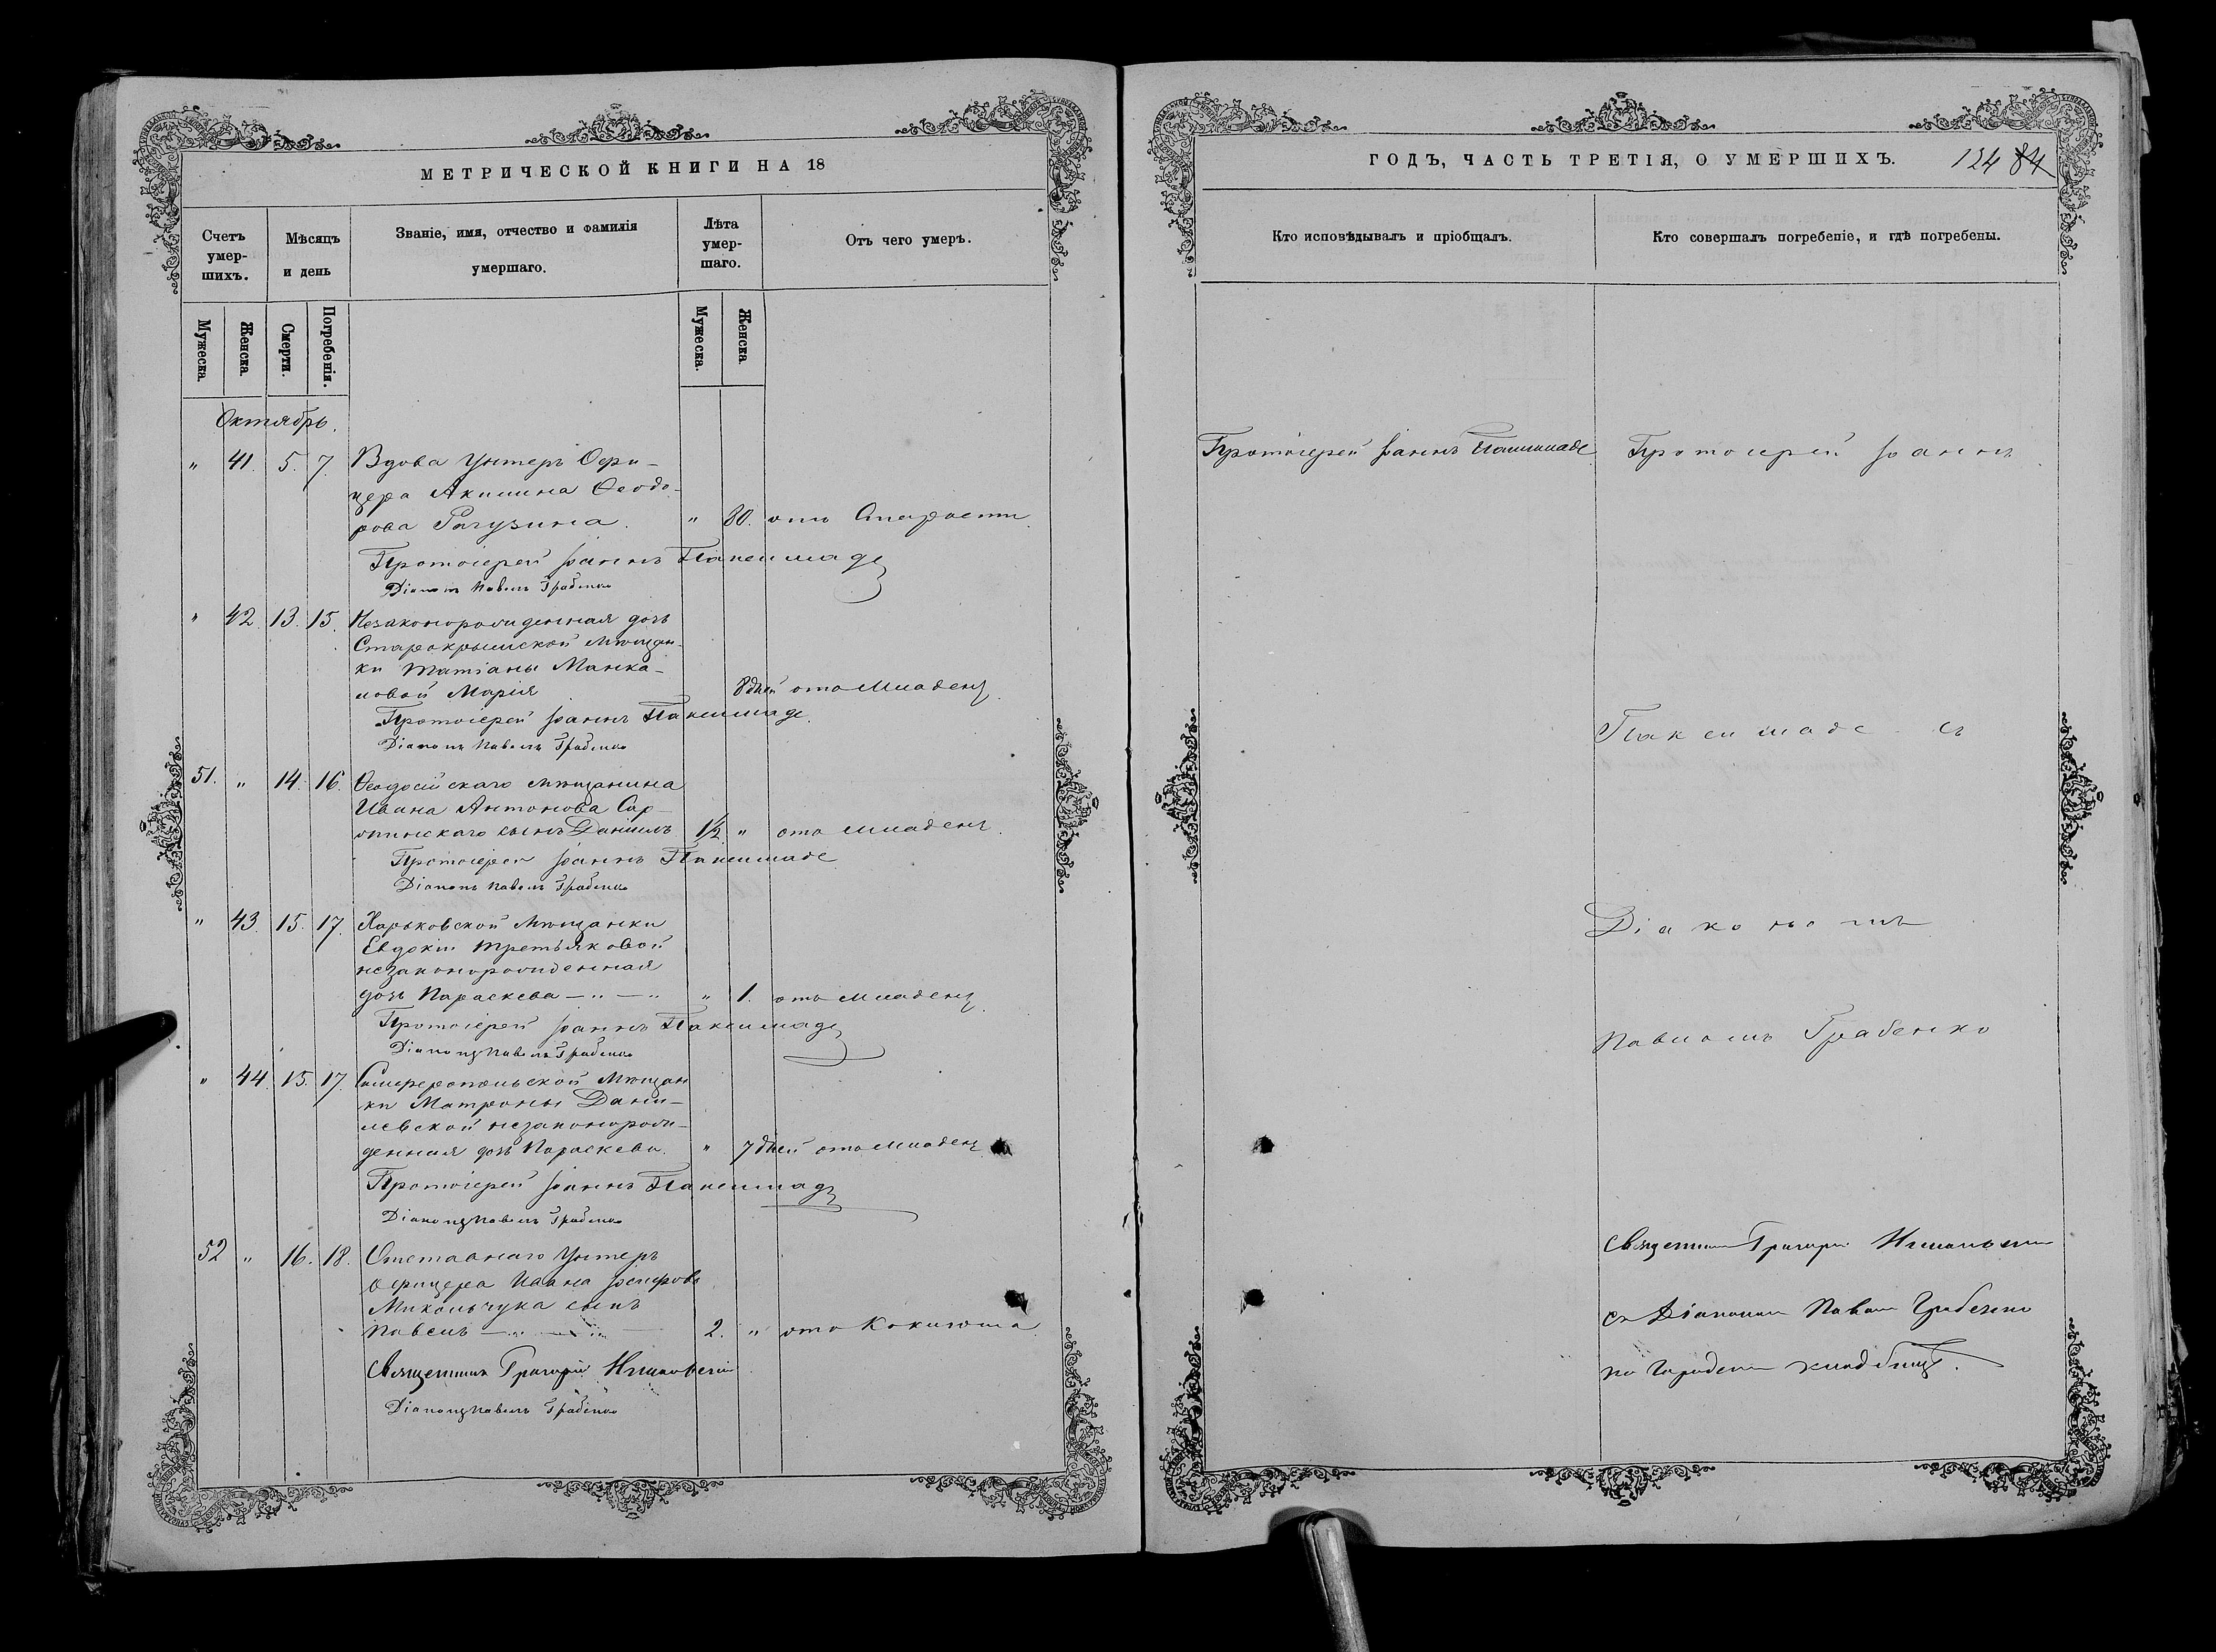 МЕТРИЧЕСКОЙ КНИГИ НА 18
Счетъ умер-шихъ.
Мѣсяцъ и день
Званіе, имя, отчество и фамилія умершаго.
Лѣта умер-шаго.
Отъ чего умеръ.
Мужеска.
Женска.
Смерти.
Погребенія.
Мужеска.
Женска.
Октябрь.
" 41. 5. 7. Вдова Унтеръ Офи-
цера Акилина Ѳеодо-
рова Рагузина. " 80. отъ Старости
Протоіерей Іоаннъ Паксимаде
Діаконъ Павелъ Грабенко
" 42. 13. 15. Незаконорожденная дочь
Старокрымской Мѣщан-
ки Татіаны Манка-
ловой Марія 8 дней отъ младен.
Протоіерей Іоаннъ Паксимаде
Діаконъ Павелъ Грабенко
51. " 14. 16. Ѳеодосійскаго Мѣщанина
Ивана Антонова
сынъ Даніилъ 1½ " отъ младен.
Протоіерей Іоаннъ Паксимаде
Діаконъ Павелъ Грабенко
" 43. 15. 17. Харьковской Мѣщанки
Евдокіи Третьяковой
незаконорожденная
дочь Параскева " 1. отъ младен.
Протоіерей Іоаннъ Паксимаде
Діаконъ Павелъ Грабенко
" 44. 15. 17. Симферопольской Мѣщан
ки Матроны Дани-
левской незаконорож-
денная дочь Параскева. " 7 дней отъ младен.
Протоіерей Іоаннъ Паксимаде
Діаконъ Павелъ Грабенко
52 " 16. 18. Отставнаго Унтеръ
Офицера Ивана
Микольчука сынъ
Павелъ 2. " отъ Коклюша
Священникъ Григорій
Діаконъ Павелъ Грабенко
ГОДЪ, ЧАСТЬ ТРЕТІЯ, О УМЕРШИХЪ.
124 84
Кто исповѣдывалъ и пріобщалъ.
Кто совершалъ погребеніе, и гдѣ погребены.
Протоіерей Іоаннъ Паксимаде
Протоіерей Іоаннъ
Паксимаде съ
Діакономъ
Павломъ Грабенко
Священникъ Григорій
съ Діакономъ Павломъ Грабенко
на Городскомъ кладбищѣ.